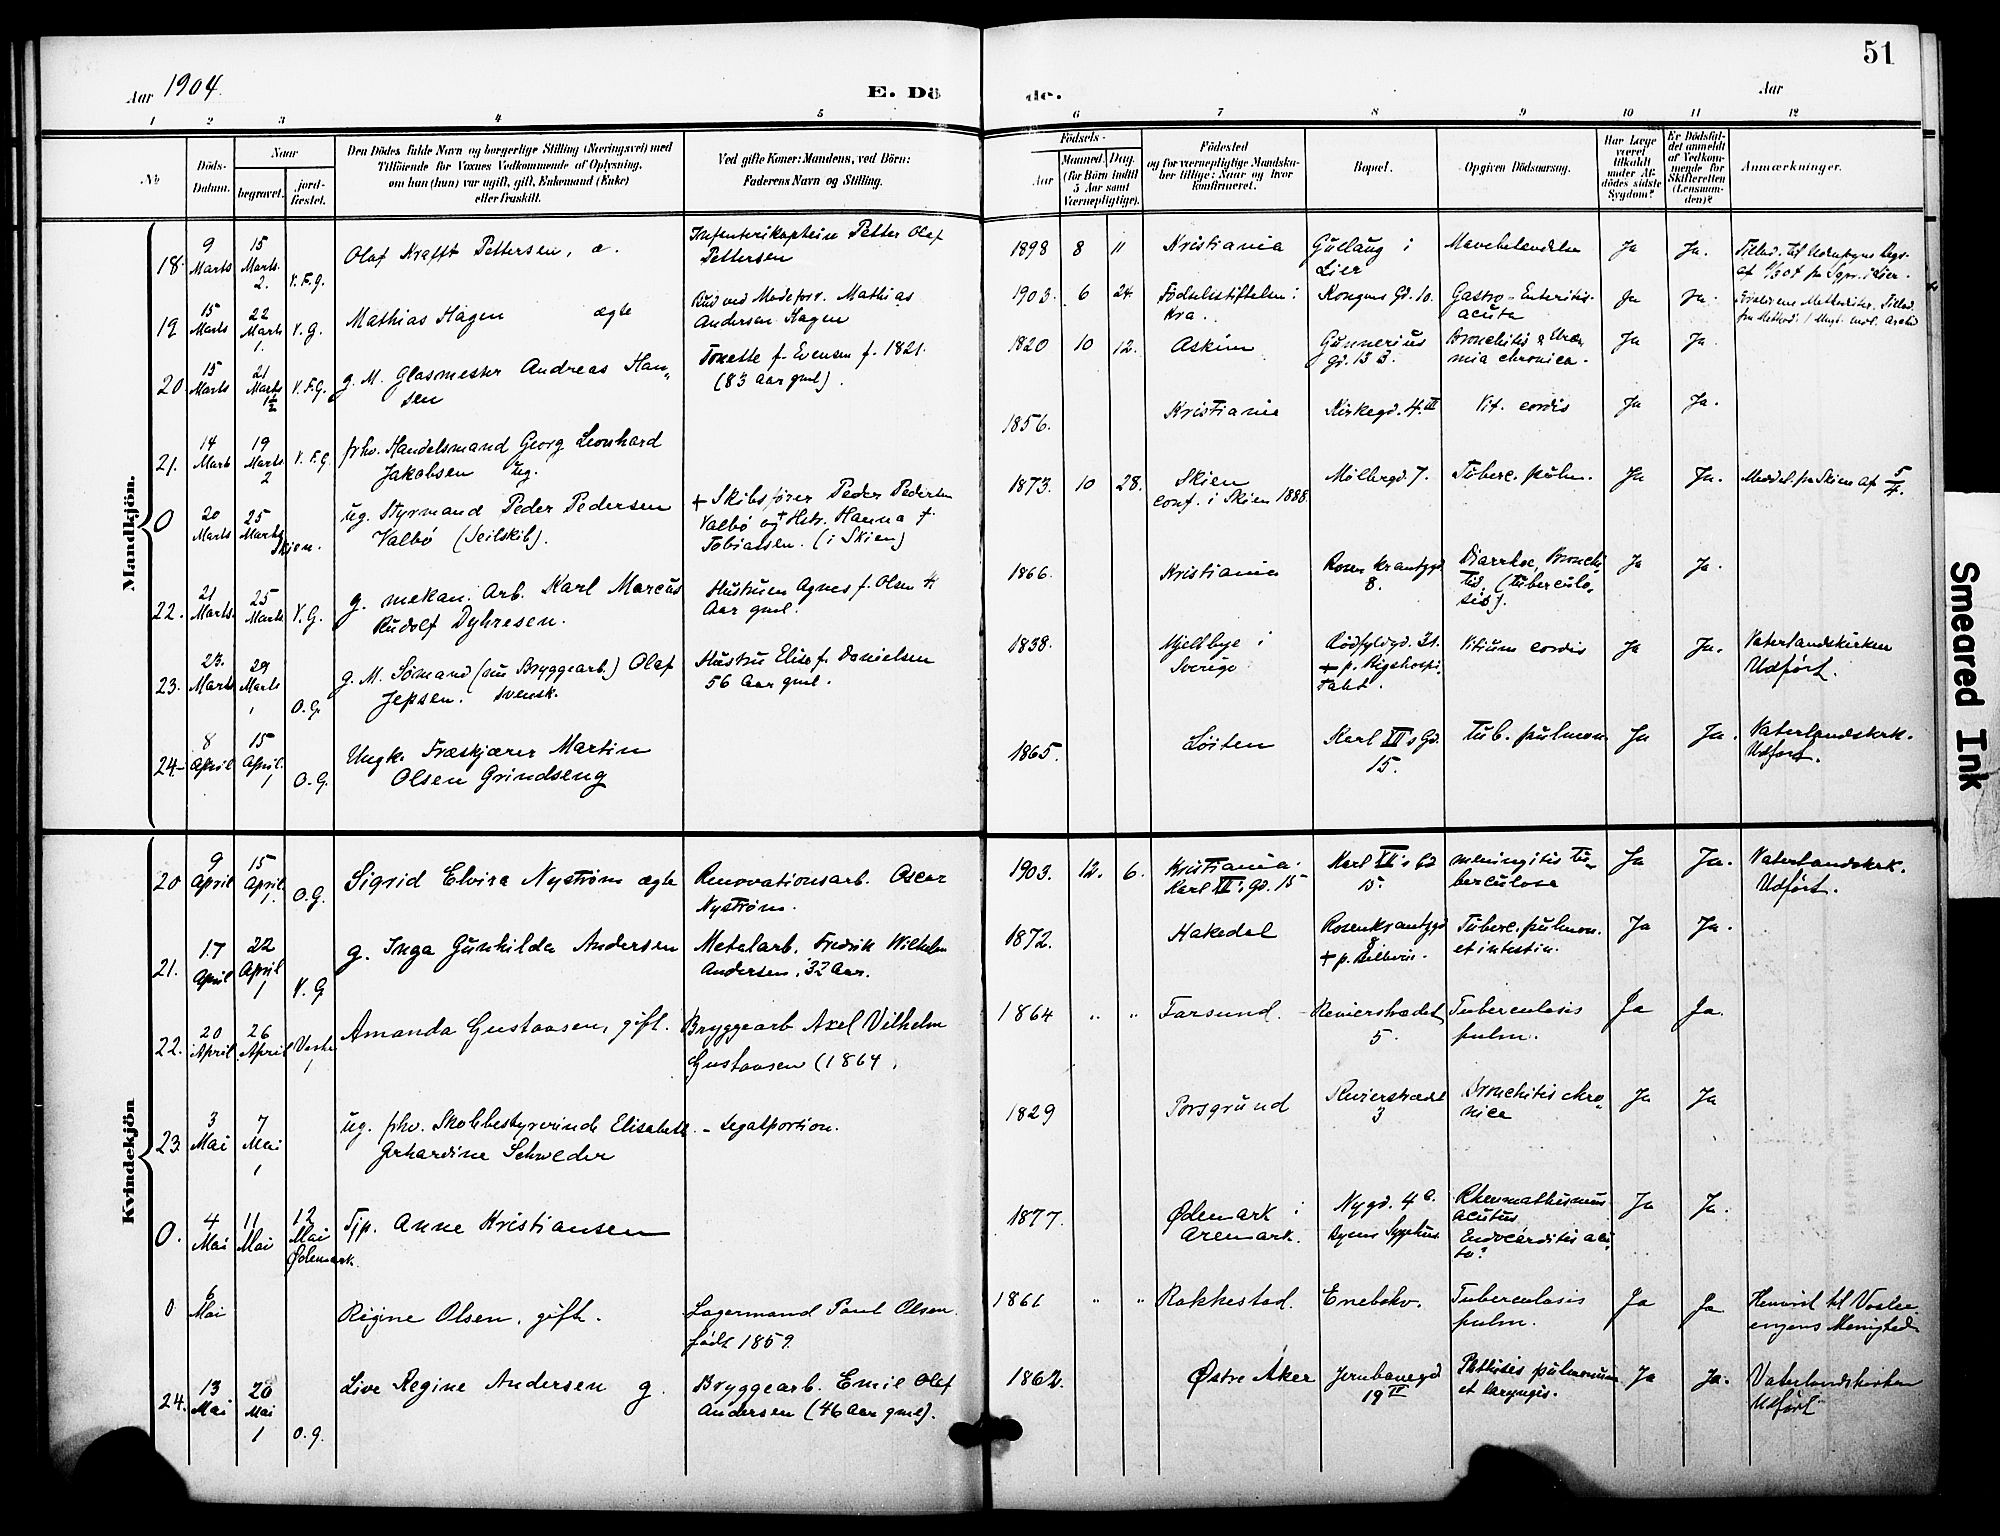 51
Aar 1904.
E. Dö
de.
Aar
1 2 3 4 5 6 7 8 9 10 11 12
No
Döds-
Datum.
Naar
begravet.
jord-
fæstet.
Den Dödes fulde Navn og borgerlige Stilling (Næringsvei) med
Tilföiende for Voxnes Vedkommende af Oplysning,
om han (hun) var ugift, gift, Enkemand (Enke)
eller fraskilt.
Ved gifte Koner: Mandens, ved Börn:
Faderens Navn og Stilling.
Födsels-
Aar
Maaned. Dag.
(for Börn indtil
5 Aar samt
Værnepligtige).
Födested
og for værnepligtige Mandska-
ber tillige: Naar og hvor
konfirmeret.
Bopæl.
Opgiven Dödsaarsag.
Har Læge
været
tilkaldt
under Af-
dödes sidste
Sygdom?
Er Dödsfal-
det anmeldt
af Vedkom-
mende for
Skifteretten
(Lensman-
den)?
Anmærkninger.
Mandkjön.
18. 9 Marts 15 Marts. 2. V.F.G.
Olaf Krafft Pettersen, æ.
Infanterikaptein Petter Olaf
Pettersen
1898 8 11 Kristiania
Gullaug i
Lier
Ja Ja.
19 15 Marts 22 Marts 1. V.G.
Mathias Hagen ægte
Mathias
Andersen Hagen
1903. 6 24. Fødselsstiftelsen i
Kra.
Kongens Gd. 10.
Gastro-Enteritis
acuta
Ja Ja.
20. 15 Marts 21 Marts 1½ V.F.G.
g. M. Glasmester Andreas Han-
sen
Tonette f. Evensen f. 1821.
(83 Aar gml).
1820 10 12. Askim
Gunnerius
gd. 13 3.
Bronchitis &
mia chronica.
Ja Ja.
21. 14 Marts 19 Marts 2 V.F.G.
frhv. Handelsmand Georg Leonhard
Jakobsen ug.
1856. Kristiania
Kirkegd. 4. III
Vit. cordis
Ja Ja.
0 20 Marts 25 Marts Skien.
ug. Styrmand Peder Pedersen
Valbø (Seilskib).
+ Skibsfører Peder Pedersen
Valbø og + Hstr. Hanna f.
Tobiassen. (i Skien)
1873. 10 28. Skien
conf. i Skien 1888.
Møllergd. 7.
Tuberc. pulm.
Ja Ja.
Meddel. fra Skien af 5/4.
22. 21 Marts. 25 Marts V.G.
g. mekan. Arb. Karl Marcus
Rudolf Dyhresen.
Hustruen Agnes f. Olsen
Aar gml.
1866. Kristiania
Rosenkrantzgd
8.
Diarrhoe, Bronchi-
tis, (tuberculo-
sis).
Ja Ja.
23. 23. Marts 29 Marts 1 O.G.
g. M. Sømand (nu Bryggearb.) Olaf
Jepsen. svensk.
Hustru Elise f. Danielsen
56 Aar gml.
1838. Mjellbye i
Sverige
Rødfyldgd. 21.
+ p. Rigshospi-
talet.
Vitium cordis
Ja Ja.
Vaterlandskirken
Udført.
24. 8 April 15 April. 1 O.G.
Ungk. Træskjærer Martin
Olsen Grindseng
1865. Løiten
Karl XII's Gd.
15.
Tub. pulmon.
Ja Ja.
Vaterlandskrk.
Udført.
Kvindekjön
20 9 April 15 April. 1. O.G.
Sigrid Elvira Nystrøm ægte
Renovationsarb. Oscar
Nystrøm.
1903. 12. 6. Kristiania.
Karl XII's Gd. 15
Karl XII's Gd
15.
meningitis tu-
berculosa
Ja Ja.
Vaterlandskrk.
Udført.
21. 17 April 22 April 1 V.G
g. Inga Gunhilda Andersen
Metalarb. Fredrik Wilhelm
Andersen, 32 Aar.
1872. Hakedal
Rosenkrantzgd
8
Tuberc. pulmon.
et intestin.
Ja Ja.
22. 20 April 26 April 1
Amanda Gustavsen, gift.
Bryggearb Axel Vilhelm
Gustavsen (1864.
1864 " " Farsund.
Revierstrædet
5.
Tuberculosis
pulm.
Ja Ja.
23. 3 Mai 7 Mai 1
ug. frhv. Skolebestyrerinde Elisabeth
Gerhardine Schweder
- Legatportion.
1829 Porsgrund
Revierstrædet
3
Bronchitis chro-
nica
Ja Ja
0. 4 Mai 11 Mai 12 Mai Ødemark.
Tjp. Anne Kristiansen
1877. Ødemark i
Aremark.
Nygd. 4 a.
Byens Sygehus.
Rheumathismus
acutus
Endocarditis acu-
ta?
Ja Ja.
0 6 Mai
Regine Olsen, gift.
Lagermand Paul Olsen.
født 1859.
1861 " " Rakkestad.
Enebakv.
Tuberculosis
pulm.
Ja Ja
Henvist til Vaaler-
engens Menighed.
24. 13 Mai 20 Mai 1 O.G.
Live Regine Andersen g.
Bryggearb. Emil Olaf
Andersen (46 Aar gml).
1862. Østre Aker
Jernbanegd
19 IV
Phthisis pulmonum
et laryngis.
Ja Ja.
Vaterlandskirken
Udført
Smeared Ink